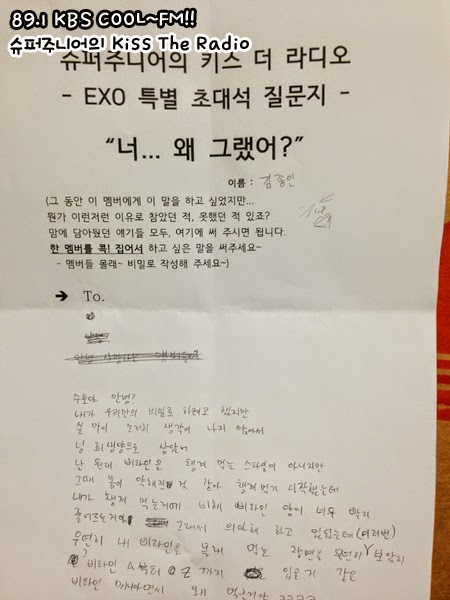 89.1 KBS COOL~FM!!
슈퍼주니어의 Kiss The Radio
슈퍼주니어의 키스 더 라디오
- EXO 특별 초대석 질문지 -
“너... 왜 그랬어?”
이름 : 김종인
(그 동안 이 멤버에게 이 말을 하고 싶었지만...
뭔가 이런저런 이유로 참았던 적, 못했던 적 있죠?
맘에 담아뒀던 얘기들 모두, 여기에 써 주시면 됩니다.
한 멤버를 콕! 집어서 하고 싶은 말을 써주세요~
- 멤버들 몰래~ 비밀로 작성해 주세요~)
→ To.
수호야 안녕?
내가 우리만의 비밀로 하려고 했지만
할 말이 도저히 생각이 나지 않아서
널 희생양으로 삼았어
난 원래 비타민은 챙겨 먹는 스타일이 아니지만
그때 몸이 약해진 것 같아 챙겨먹기 시작했는데
내가 챙겨 먹는거에 비해 비타민 양이 너무 빨리
줄어드는거야 그래서 의아해 하고 있었는데 (여러번)
우연히 내 비타민을 몰래 먹는 장면을 목격
? 비타민 A부터 Z 까지 있는거 같은
비타민 왜 먹는거야